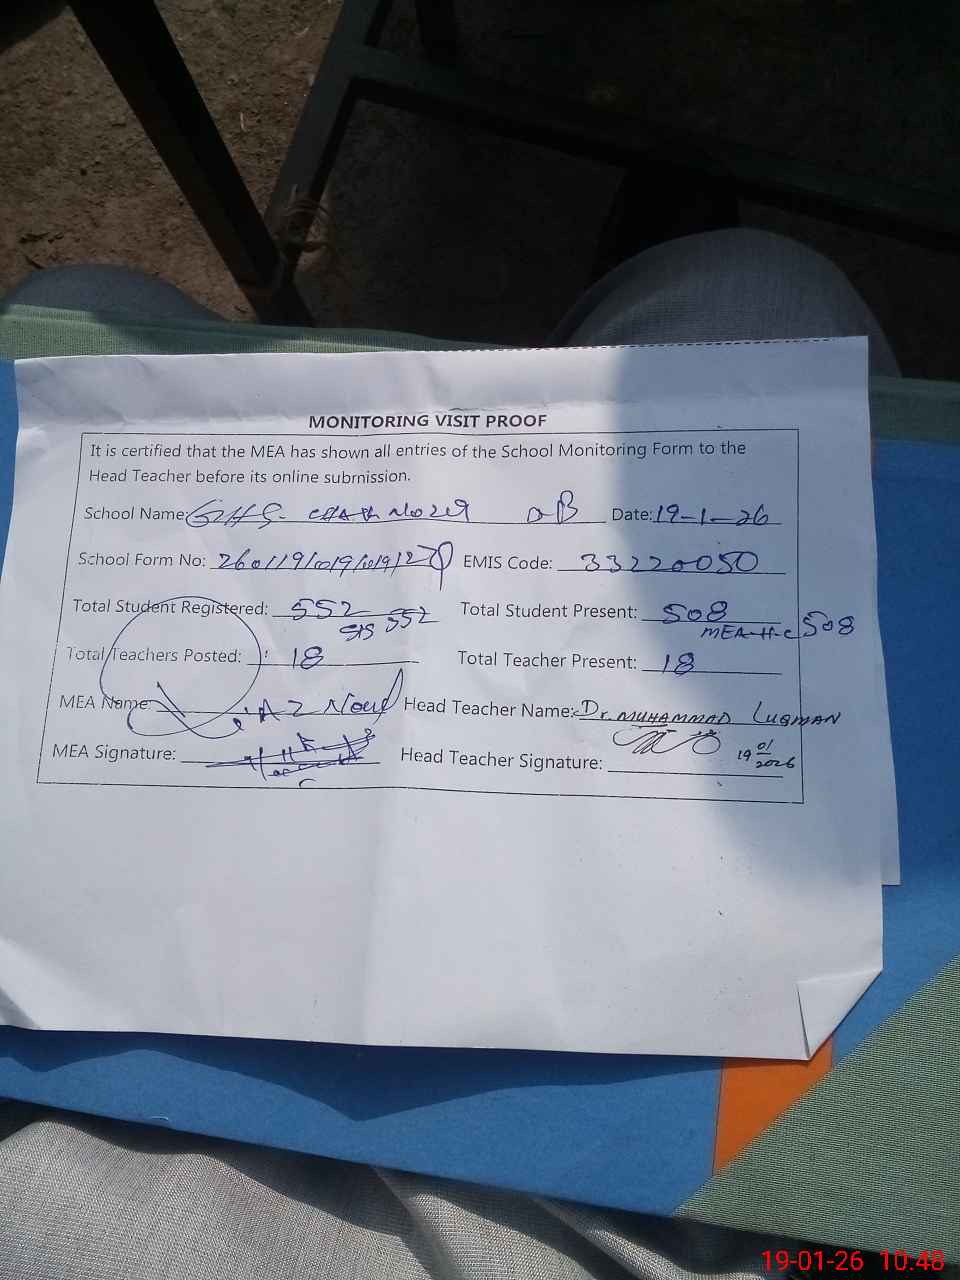 MONITORING VISIT PROOF
It is certified that the MEA has shown all entries of the School Monitoring Form to the
Head Teacher before its online submission.
School Name: GHS. No 219 Date: 19-1-26
School Form No: EMIS Code: 33220050
Total Student Registered: 552 Total Student Present: 508
SIS 552 MEA-H-C 508
Total Teachers Posted: 18 Total Teacher Present: 18
MEA Name: Head Teacher Name: Dr. MUHAMMAD LUQMAN
MEA Signature: Head Teacher Signature: 19 01 2026
19-01-26 10:48